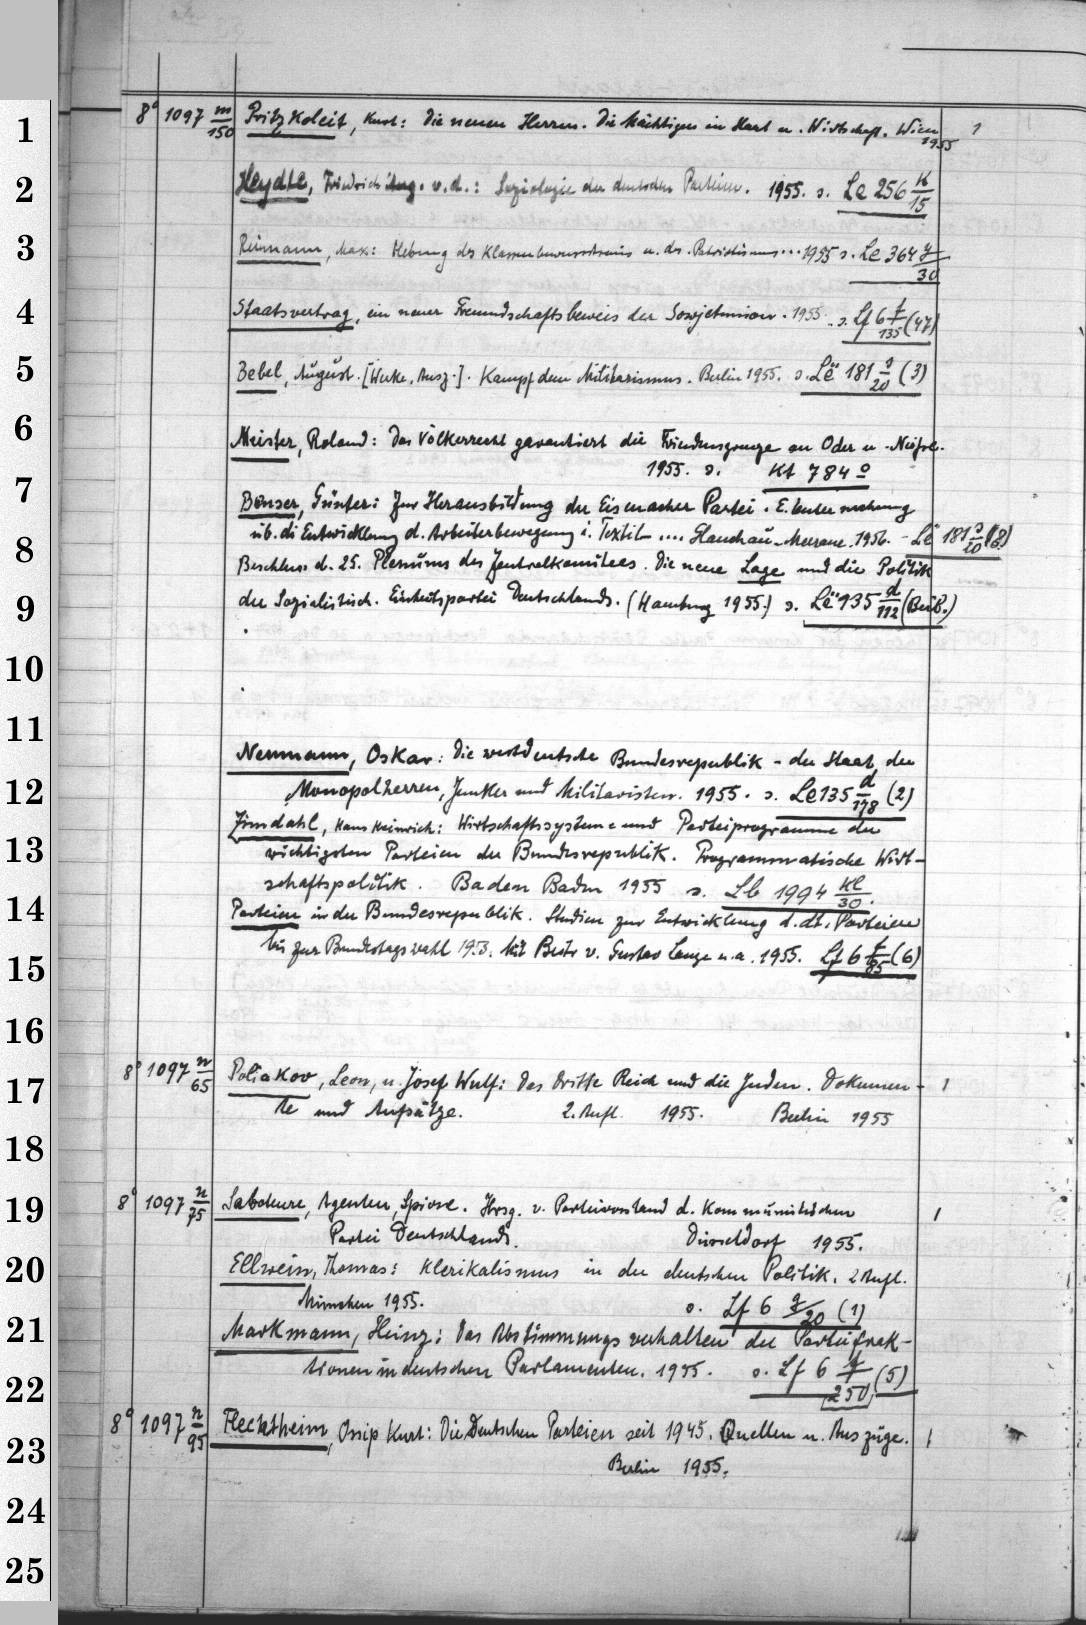 1 8° 1097 m/150 Pritzkoleit, Kurt: Die neuen Herren. Die Mächtigen in Staat u. Wirtschaft. Wien 1955 1
2 Heydte, Friedrich Aug. v. d.: Soziologie der deutschen Parteien. 1955. s. Le 256 k/15
3 Reimann, Max: Hebung des Klassenbewusstseins u. des Patriotismus... 1955 s. Le 364 y/30
4 Staatsvertrag, ein neuer Freundschaftsbeweis der Sowjetunion. 1955. s. Lf 6 f/135 (47)
5 Bebel, August. [Werke, Ausz.]. Kampf dem Militarismus. Berlin 1955. s. Lë 181 s/20 (3)
6 Meister, Roland: Das Völkerrecht garantiert die Friedensgrenze an Oder u. Neiße.
1955. s. Kt 784 o
7 Benser, Günter: Zur Herausbildung der Eisenacher Partei. E. Untersuchung
8 üb. di Entwicklung d. Arbeiterbewegung i. Textil .... Glauchau-Meerane. 1956. - Lë 181 s/20 (8)
Beschluss d. 25. Plenums des Zentralkomitees. Die neue Lage und die Politik
9 der Sozialistisch. Einheitspartei Deutschlands. (Hamburg 1955.) s. Lë 135 d/112 (Beib.)
10
11
Neumann, Oskar: Die westdeutsche Bundesrepublik - der Staat der
12 Monopolherren, Junker und Militaristen. 1955. s. Le 135 d/178 (2)
Zimdahl, Hans Heinrich: Wirtschaftssysteme und Parteiprogramme der
13 wichtigsten Parteien der Bundesrepublik. Programmatische Wirt-
schaftspolitik. Baden Baden 1955 s. Lb 1994 kl/30.
14 Parteien in der Bundesrepublik. Studien zur Entwicklung d. dt. Parteien
15 bis zur Bundestagswahl 1953. Mit Beitr v. Gustav Lange u. a. 1955. Lf 6 f/85 (6)
16
8° 1097 n/65 Poliakov, Leon, u. Josef Wulf: Das Dritte Reich und die Juden. Dokumen- 1
17 te und Aufsätze. 2. Aufl. 1955. Berlin 1955
18
19 8° 1097 n/75 Saboteure, Agenten, Spione. Hrsg. v. Parteivorstand d. Kommunistischen 1
Partei Deutschlands. Düsseldorf 1955.
20 Ellwein, Thomas: Klerikalismus in der deutschen Politik. 2 Aufl.
München 1955. s. Lf 6 g/20 (1)
21 Markmann, Heinz: Das Abstimmungsverhalten der Parteifrak-
22 tionen in deutschen Parlamenten. 1955. s. Lf 6 f/250 (5)
23 8° 1097 n/95 Flechtheim, Ossip Kurt: Die Deutschen Parteien seit 1945. Quellen u. Auszüge. 1
Berlin 1955.
24
25